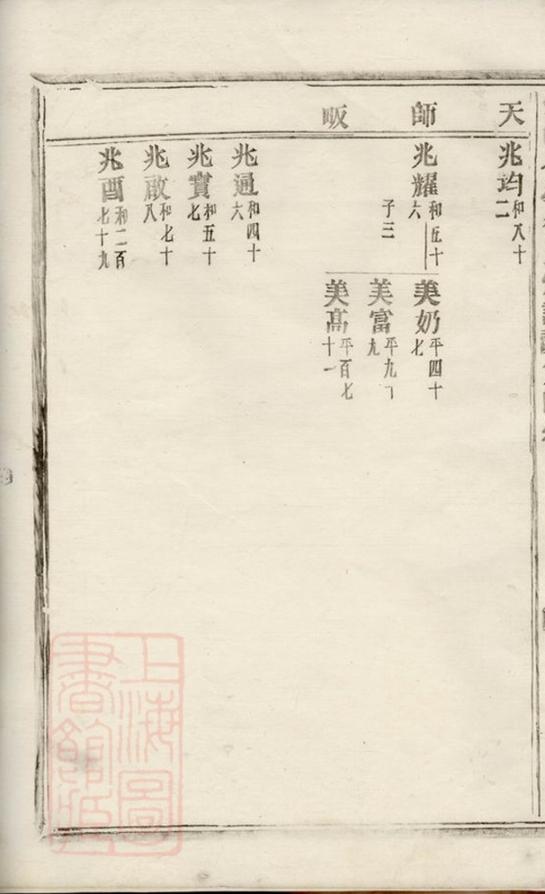 天
師
畈
兆均 和八十二
兆耀 和五十六
子三
美奶 平四十七
美富 平九十九
美高 平百七十一
兆通 和四十六
兆寳 和五十七
兆敢 和七十八
兆酉 和二百七十九
上海圖書館藏